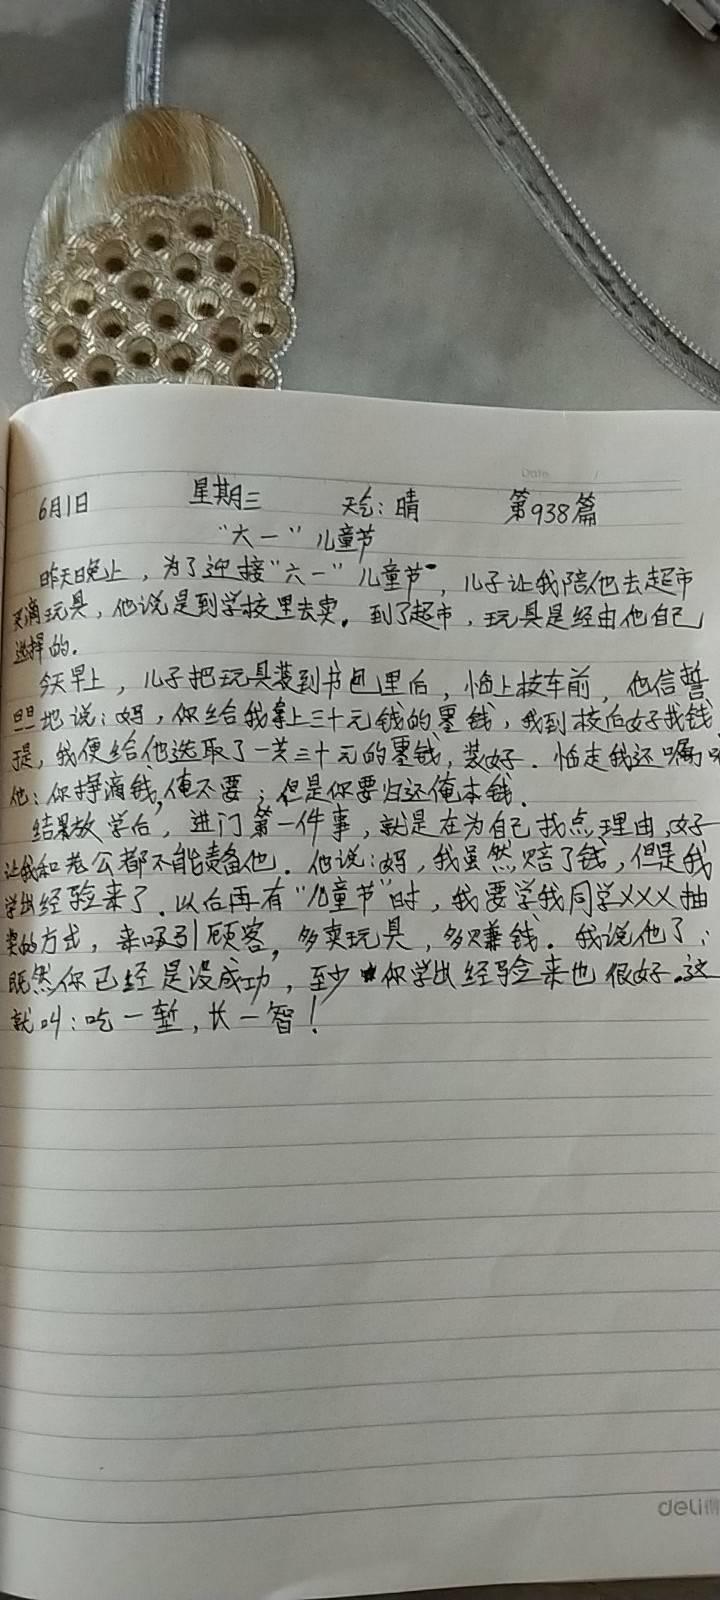 Date /
6月1日 星期三 天气：晴 第938篇
“六一”儿童节
昨天晚上，为了迎接“六一”儿童节，儿子让我陪他去超市
买滴玩具，他说是到学校里去卖。到了超市，玩具是经由他自己
选择的。
今天早上，儿子把玩具装到书包里后，临上校车前，他信誓
旦旦地说：妈，你给我拿上三十元钱的零钱，我到校后好找钱
于是，我便给他选取了一共三十元的零钱，装好．临走我还嘱
他：你挣滴钱，俺不要；但是你要归还俺本钱．
结果放学后，进门第一件事，就是在为自己找点理由，好
让我和老公都不能责备他．他说：妈，我虽然赔了钱，但是我
学出经验来了．以后再有“儿童节”时，我要学我同学XXX抽
奖的方式，来吸引顾客，多卖玩具，多赚钱．我说他了；
既然你已经是没成功，至少你学出经验来也很好。这
就叫：吃一堑，长一智！
deli得